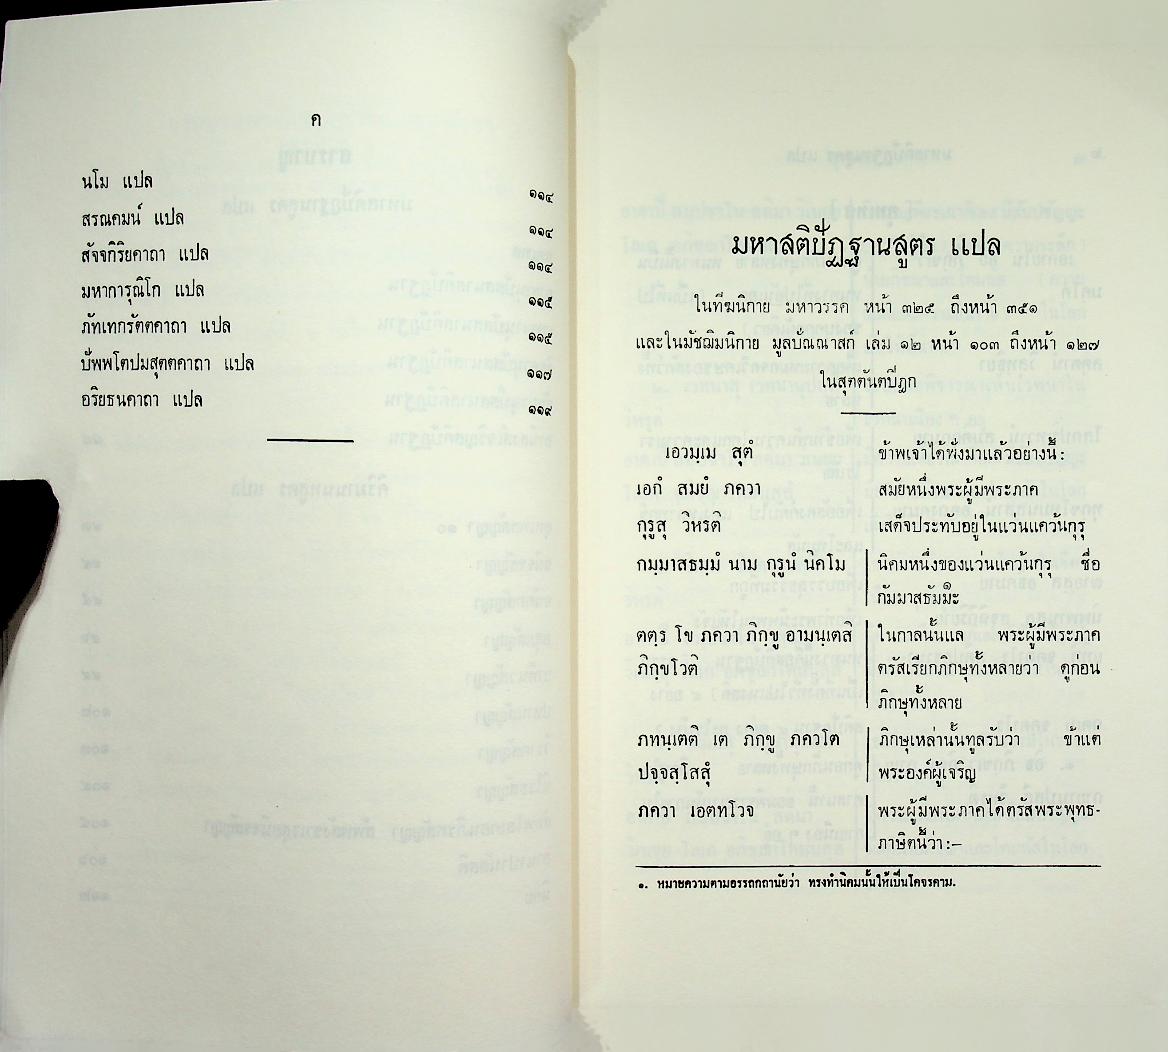 ค
นโม แปล ๑๑๔
สรณคมน์ แปล ๑๑๔
สัจจกิริยคาถา แปล ๑๑๔
มหาการุณิโก แปล ๑๑๕
ภัทเทกรัตตคาถา แปล ๑๑๕
บัพพโตปมสุตตคาถา แปล ๑๑๗
อริยธนคาถา แปล ๑๑๙
มหาสติปัฏฐานสูตร แปล
ในทีฆนิกาย มหาวรรค หน้า ๓๒๕ ถึงหน้า ๓๕๑
และในมัชฌิมนิกาย มูลปัณณาสก์ เล่ม ๑๒ หน้า ๑๐๓ ถึงหน้า ๑๒๗
ในสุตตันตปิฎก
เอวมฺเม สุตํ ข้าพเจ้าได้ฟังมาแล้วอย่างนี้ :
เอกํ สมยํ ภควา สมัยหนึ่งพระผู้มีพระภาค
กุรูสุ วิหรติ เสด็จประทับอยู่ในแว่นแคว้นกุรุ
กมฺมาสธมฺมํ นาม กุรูนํ นิคโม นิคมหนึ่งของแว่นแคว้นกุรุ ชื่อ
กัมมาสธัมมะ๑
ตตฺร โข ภควา ภิกฺขู อามนฺเตสิ ในกาลนั้นแล พระผู้มีพระภาค
ภิกฺขโวติ ตรัสเรียกภิกษุทั้งหลายว่า ดูก่อน
ภิกษุทั้งหลาย
ภทนฺเตติ เต ภิกฺขู ภควโต ภิกษุเหล่านั้นทูลรับว่า ข้าแต่
ปจฺจสฺโสสุํ พระองค์ผู้เจริญ
ภควา เอตทโวจ พระผู้มีพระภาคได้ตรัสพระพุทธ-
ภาษิตนี้ว่า :—
๑. หมายความตามอรรถกถานัยว่า ทรงทำนิคมนั้นให้เป็นโคจรคาม.